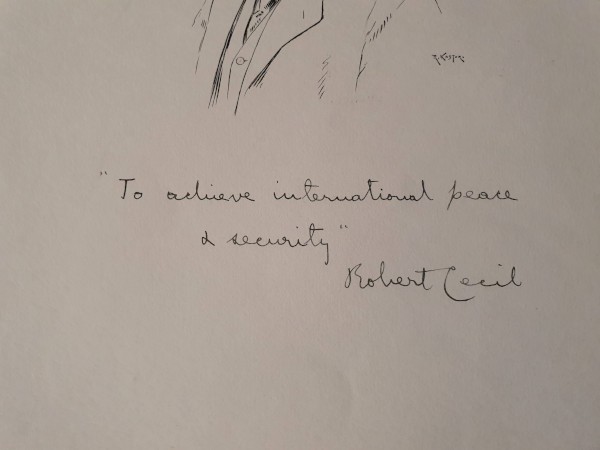 "To achieve international peace
& security"
Robert Cecil